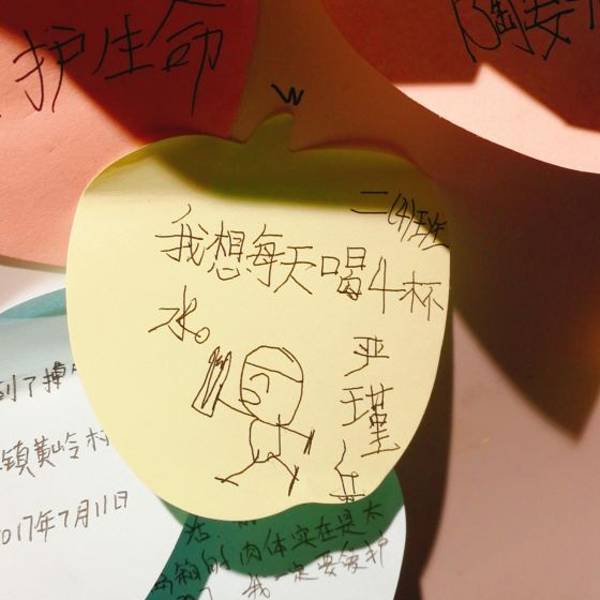 护生命
二(4)班
我想每天喝4杯
水。
严
瑾
到了
镇黄岭村
017年7月11日
的肉体实在是太
我一定要爱护